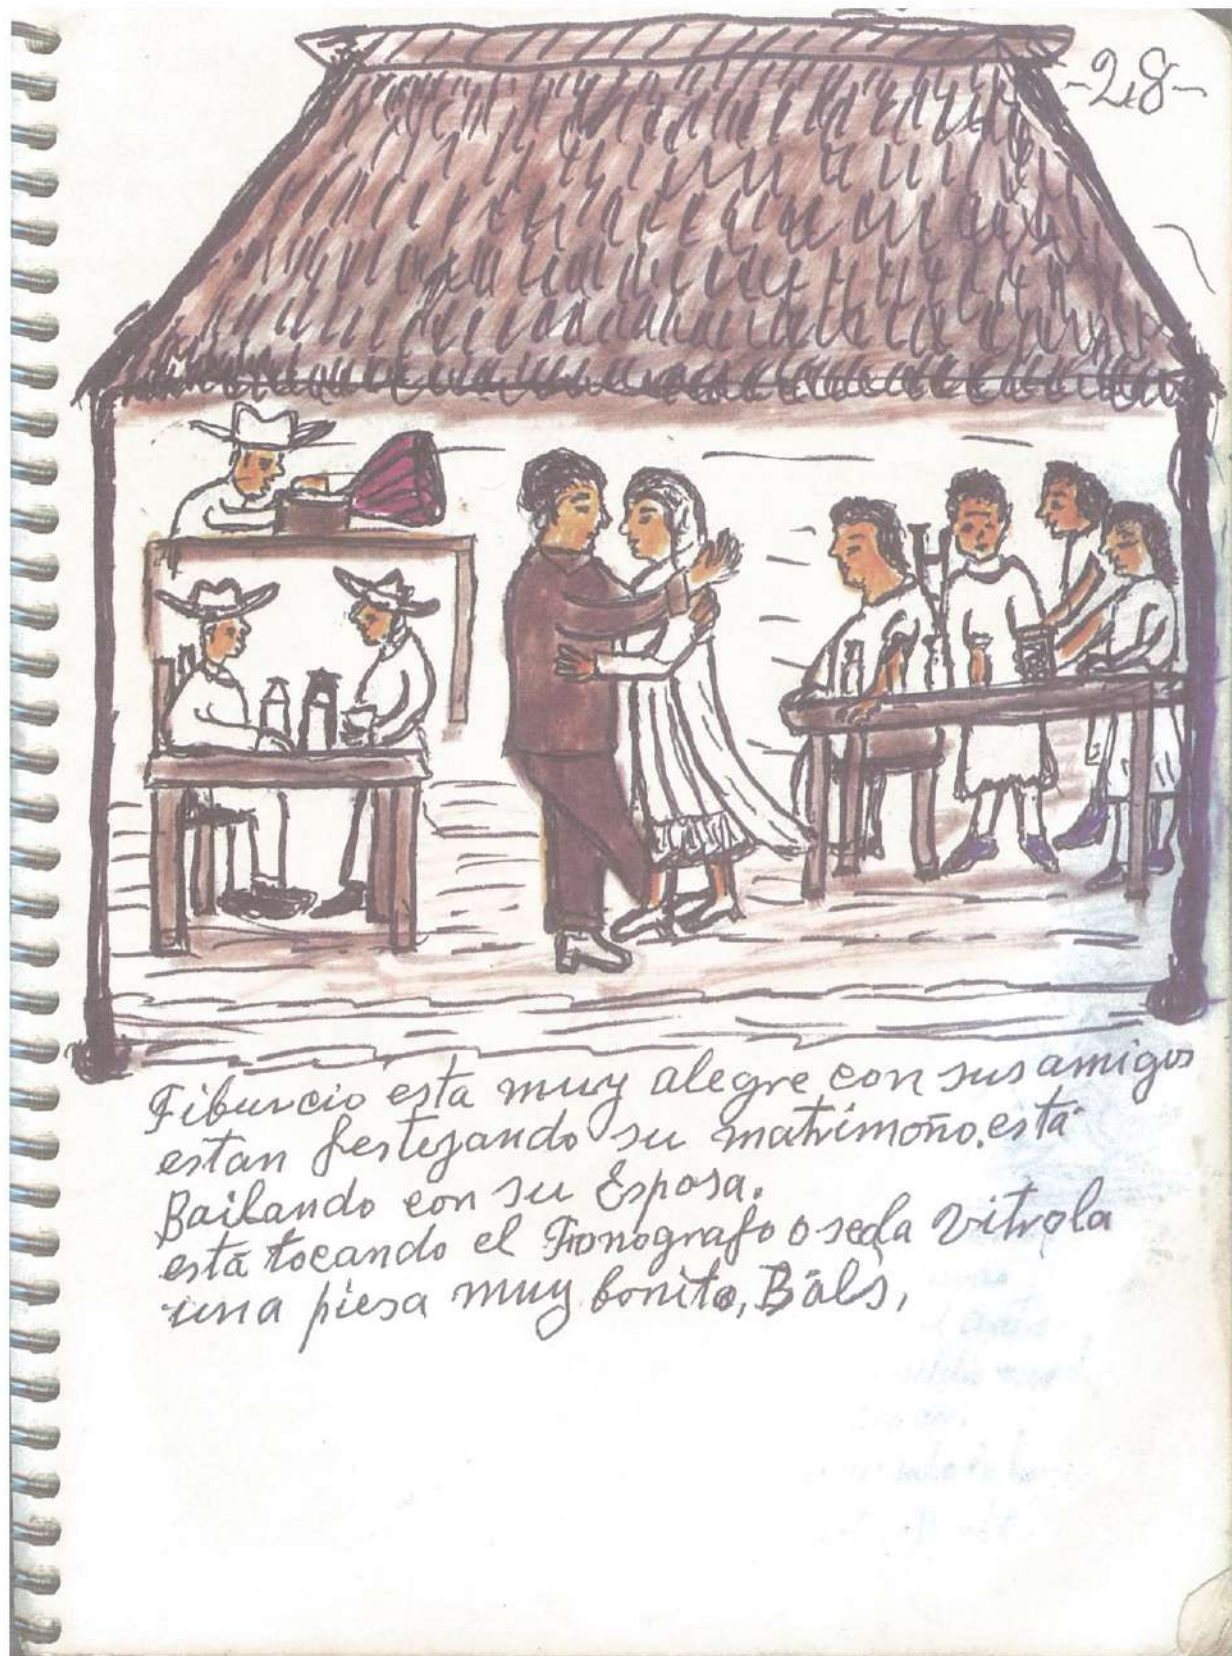 -28-
Tiburcio esta muy alegre con sus amigos
estan festejando su matrimoño. está
Bailando con su Esposa.
está tocando el Fonografo o seala vitrola
una piesa muy bonito, Bals,